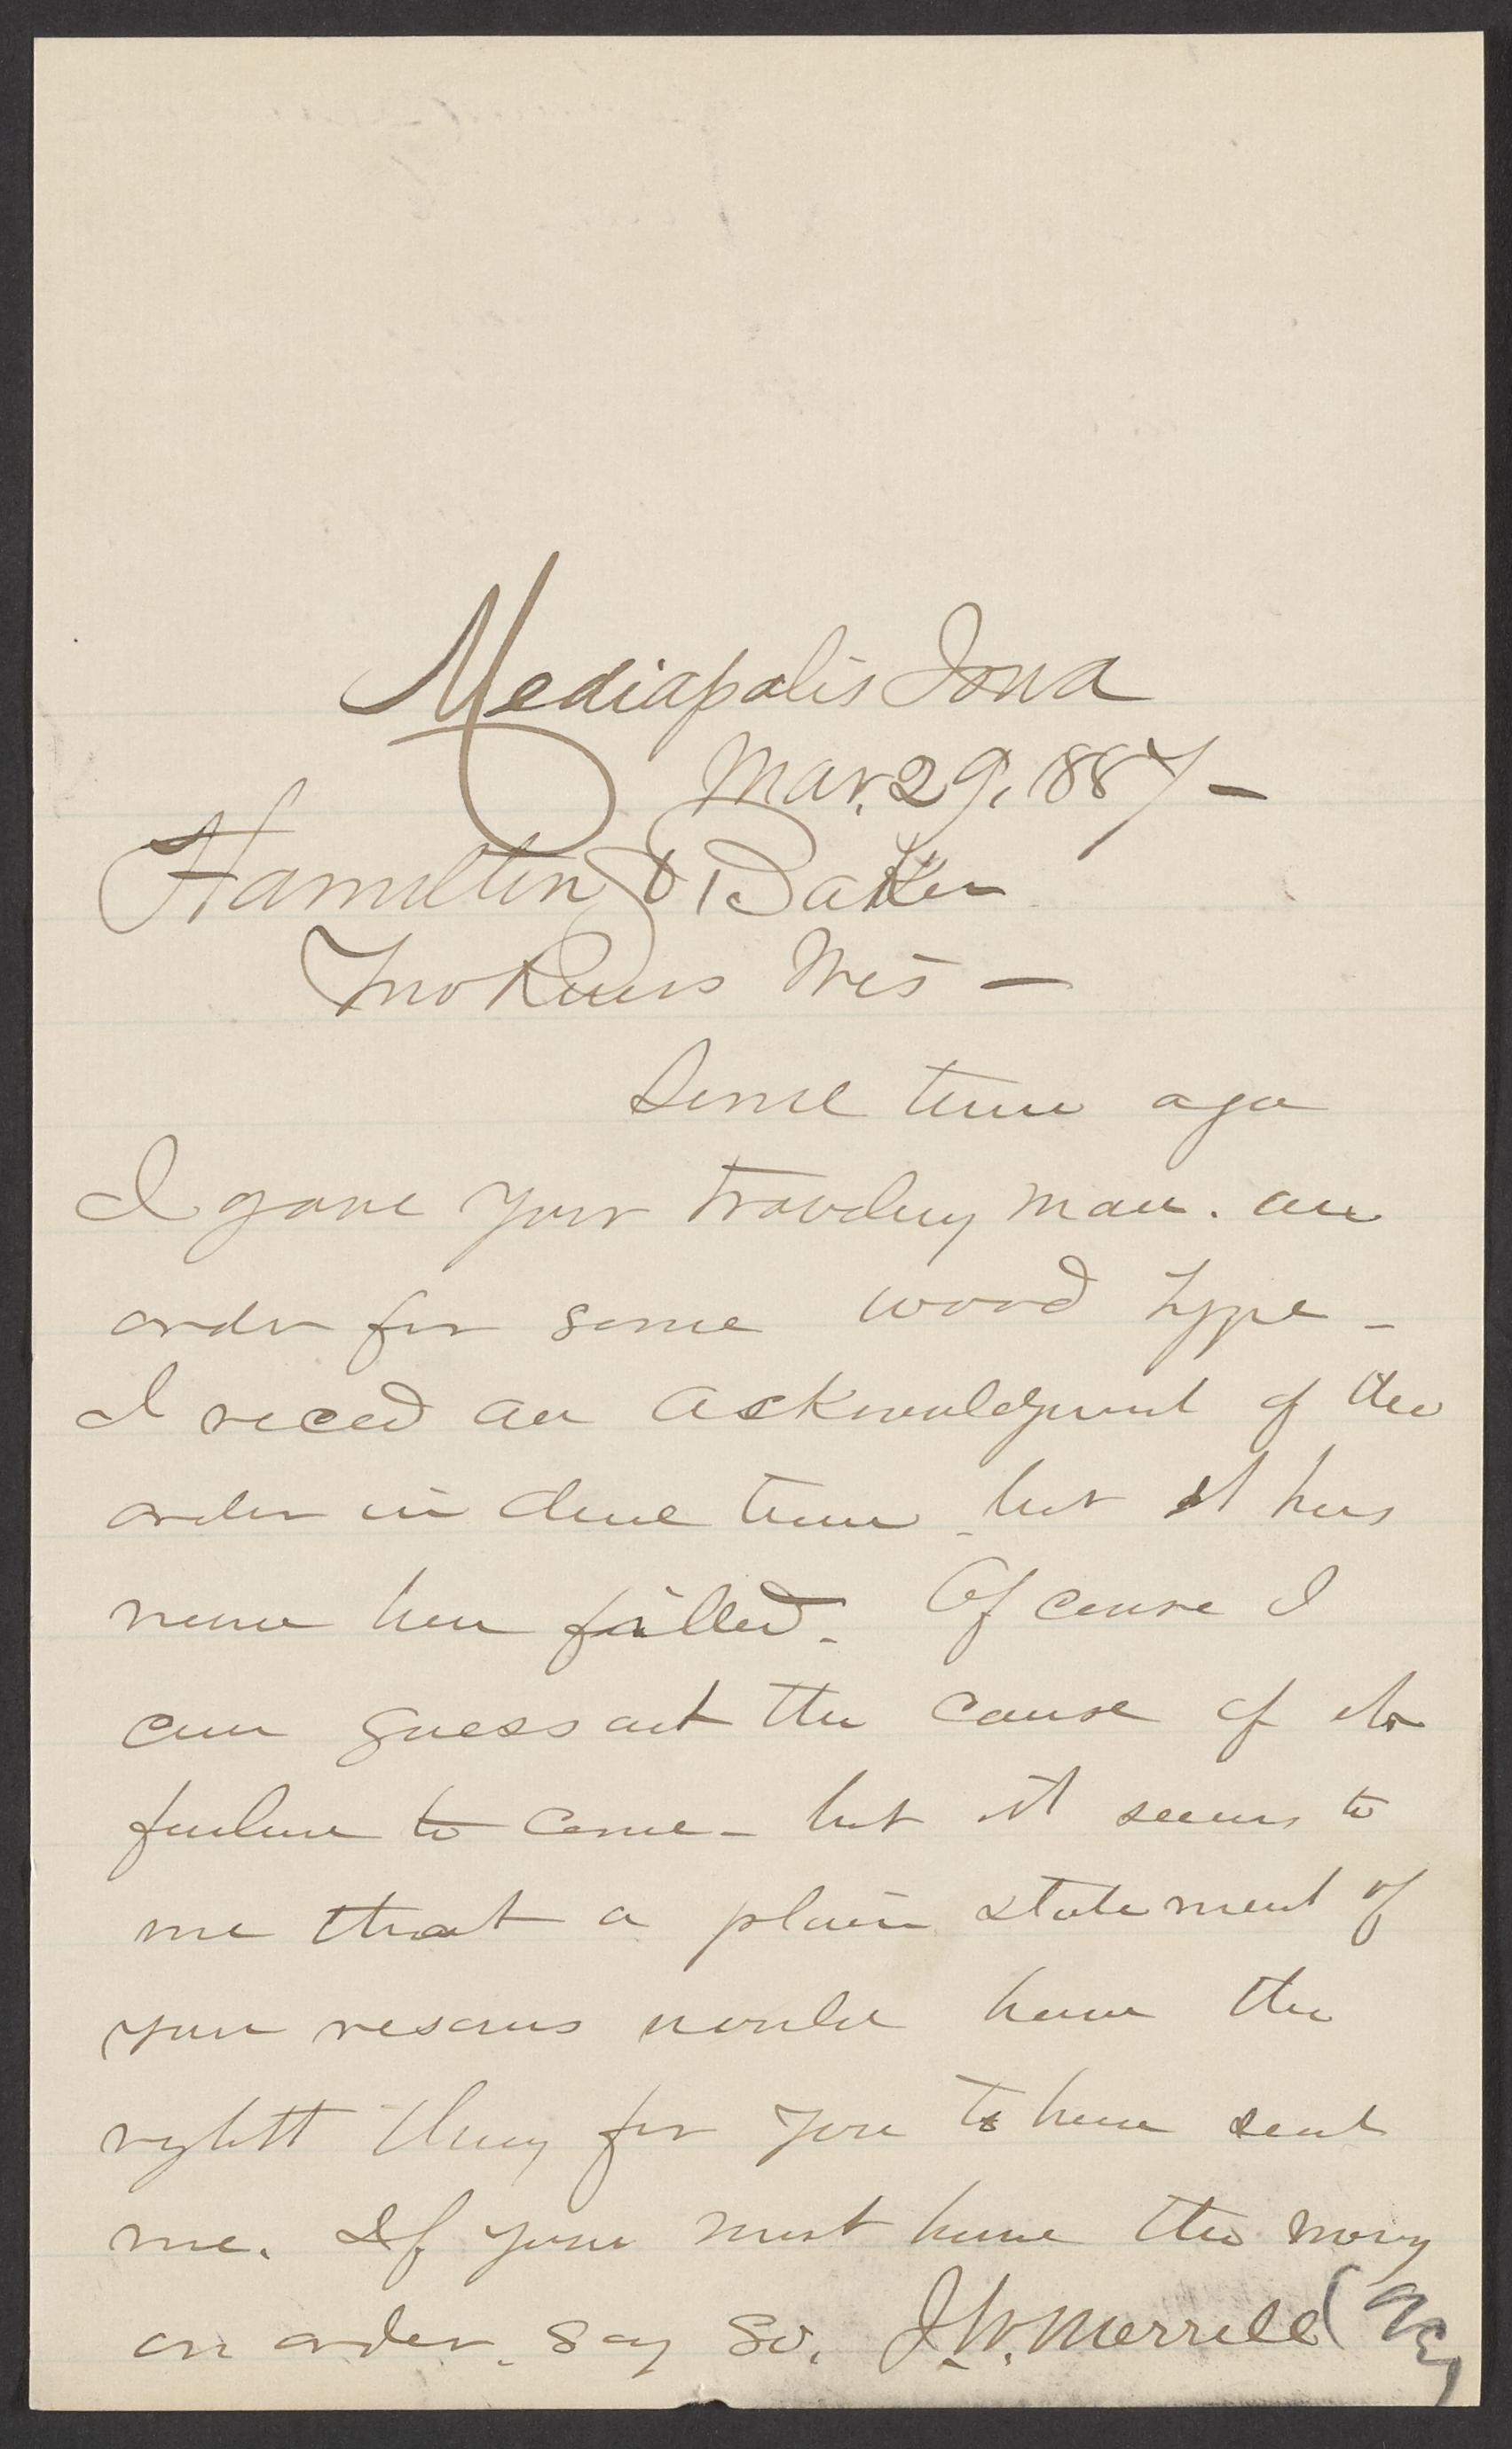 Mediapolis Iowa
Mar. 29, 1887 –
Hamilton & Baker
Two Rivers Wis –
Some time ago
I gave your traveling man. an
order for some wood type –
I reced an acknowledgment of the
order in due time – but it has
never been filled. Of course I
can guess at the cause of its
failure to come – but it seems to
me that a plain statement of
your reasons would have been the
rightt thing for you to have sent
me. If you must have the money
on order, say so. J. W. Merrell